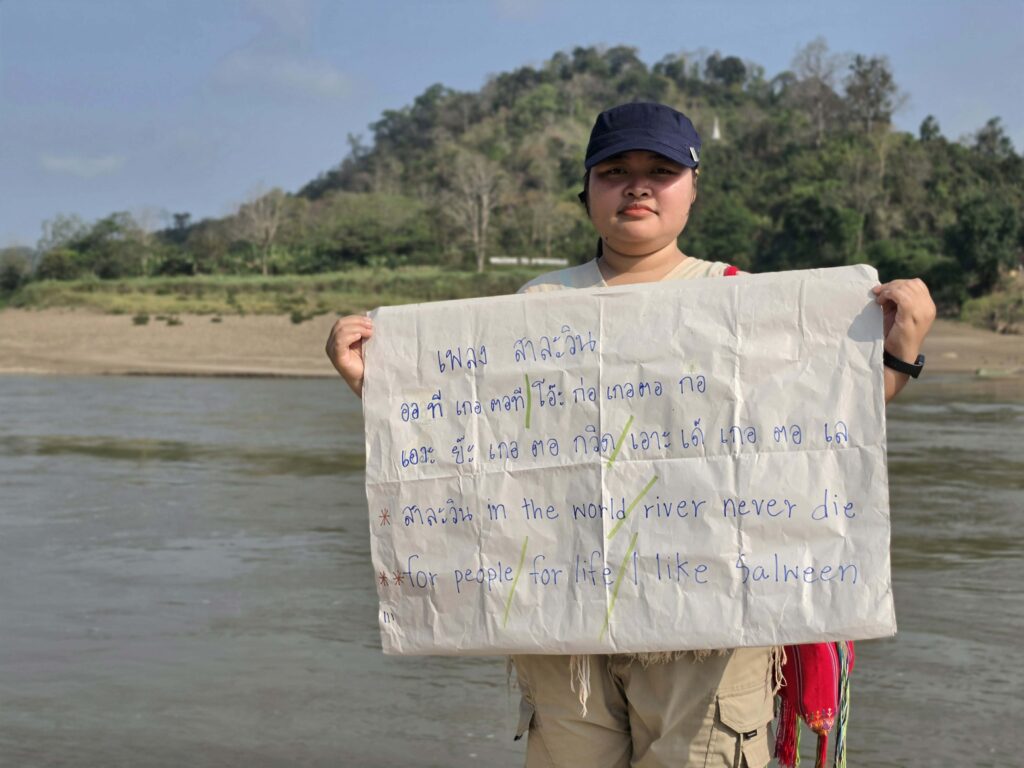 เพลง สาละวิน
ออ ที เกอ ตอที / โอ๊ะ ก่อ เกอตอ ก่อ
เอาะ ย๊ะ เกอ ตอ กวิถุ / เอาะ เด้ เกอ ตอ เล
* สาละวิน in the world / river never die
** for people / for life / I like Salween